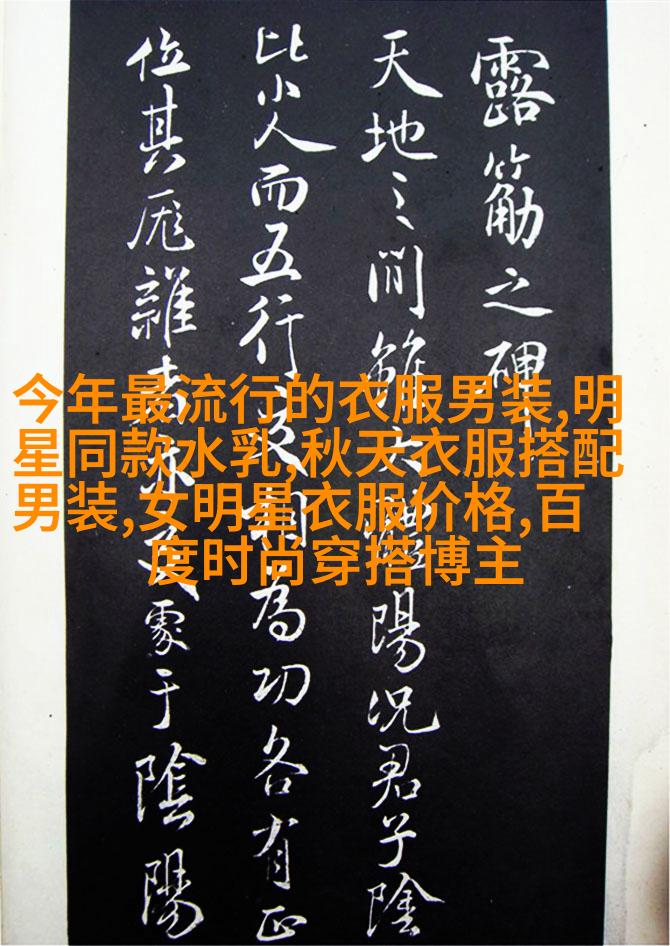 露筋之碑
天地之間雖大體陽況君子陰
比小人而五行為功各有正
位其厖雜者亦于陰陽
今年最流行的衣服男装,明
星同款水乳,秋天衣服搭配
男装,女明星衣服价格,百
度时尚穿搭博主